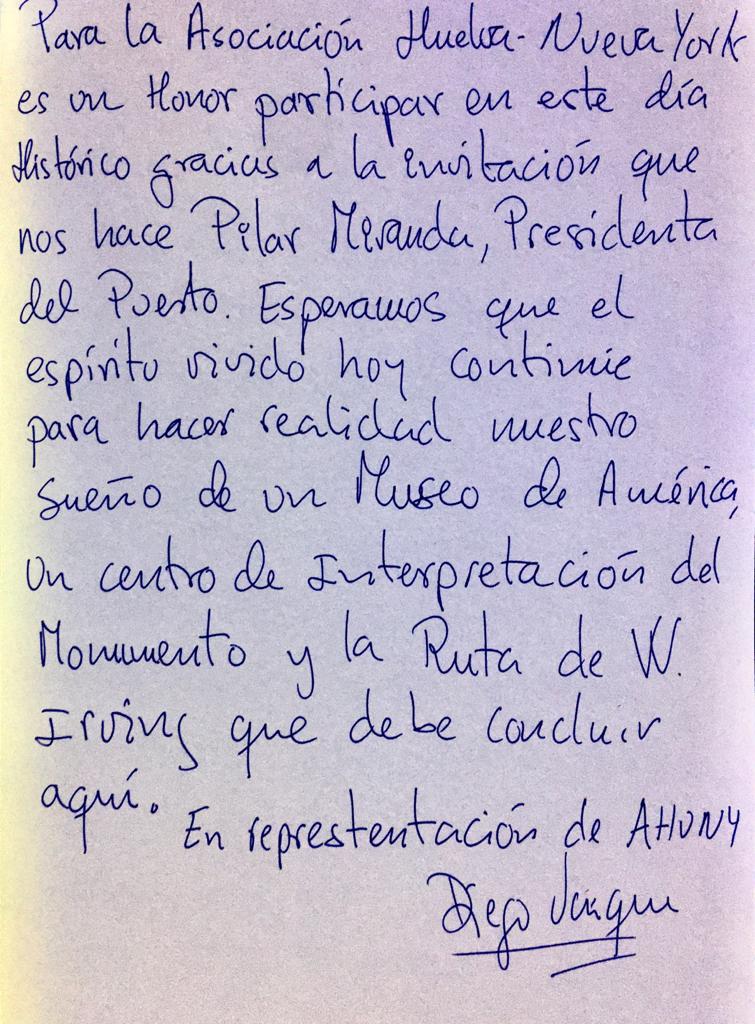 Para la Asociación Huelva-Nueva York
es un Honor participar en este día
Histórico gracias a la invitación que
nos hace Pilar Miranda, Presidenta
del Puerto. Esperamos que el
espíritu vivido hoy continúe
para hacer realidad nuestro
sueño de un Museo de América,
un centro de Interpretación del
Monumento y la Ruta de W.
Irving que debe concluir
aquí.
En représtentación de AHUNY
Diego